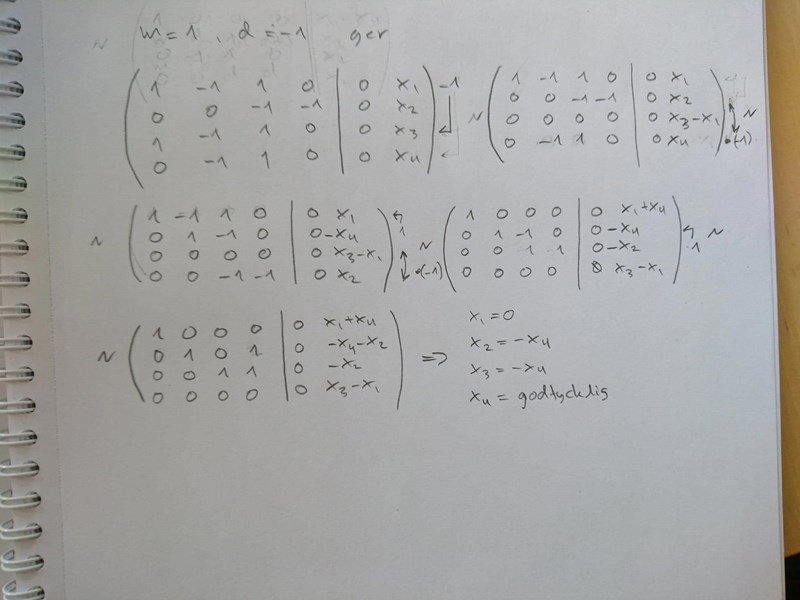 m=1, d=-1 ger
1 -1 1 0 | 0 x₁ -1
0 0 -1 -1 | 0 x₂
1 -1 1 0 | 0 x₃
0 -1 1 0 | 0 x₄
~ 1 -1 1 0 | 0 x₁
0 0 -1 -1 | 0 x₂
0 0 0 0 | 0 x₃-x₁ ~
0 -1 1 0 | 0 x₄ •(-1)
~ 1 -1 1 0 | 0 x₁
0 1 -1 0 | 0 -x₄ 1
0 0 0 0 | 0 x₃-x₁
0 0 -1 -1 | 0 x₂ •(-1)
~ 1 0 0 0 | 0 x₁+x₄
0 1 -1 0 | 0 -x₄ ~
0 0 1 1 | 0 -x₂ 1
0 0 0 0 | 0 x₃-x₁
~ 1 0 0 0 | 0 x₁+x₄
0 1 0 1 | 0 -x₄-x₂
0 0 1 1 | 0 -x₂
0 0 0 0 | 0 x₃-x₁
⇒ x₁=0
x₂=-x₄
x₃=-x₄
x₄= godtycklig